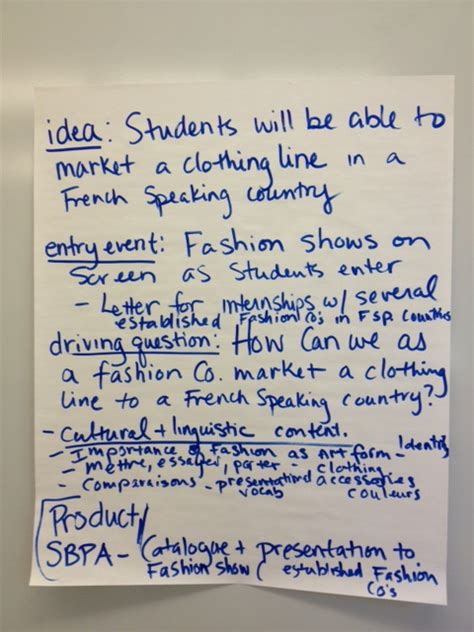 idea: Students will be able to
market a clothing line in a
French Speaking country
entry event: Fashion shows on
screen as students enter
- Letter for internships w/ several
established Fashion Co's in F sp. countries
driving question: How can we as
a fashion Co. market a clothing
line to a French Speaking country?
- Cultural + linguistic content.
- Importance of fashion as Art form - Identity
- mettre, essayer, porter - clothing
- Comparaisons - presentational accessories
vocab couleurs
Product/
SBPA - Catalogue + presentation to
Fashion show ( established Fashion
Co's